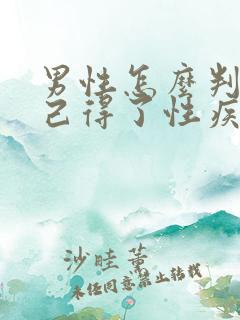 男性怎麼判
己得了性疾
沙畦薰
未经同意禁止转载